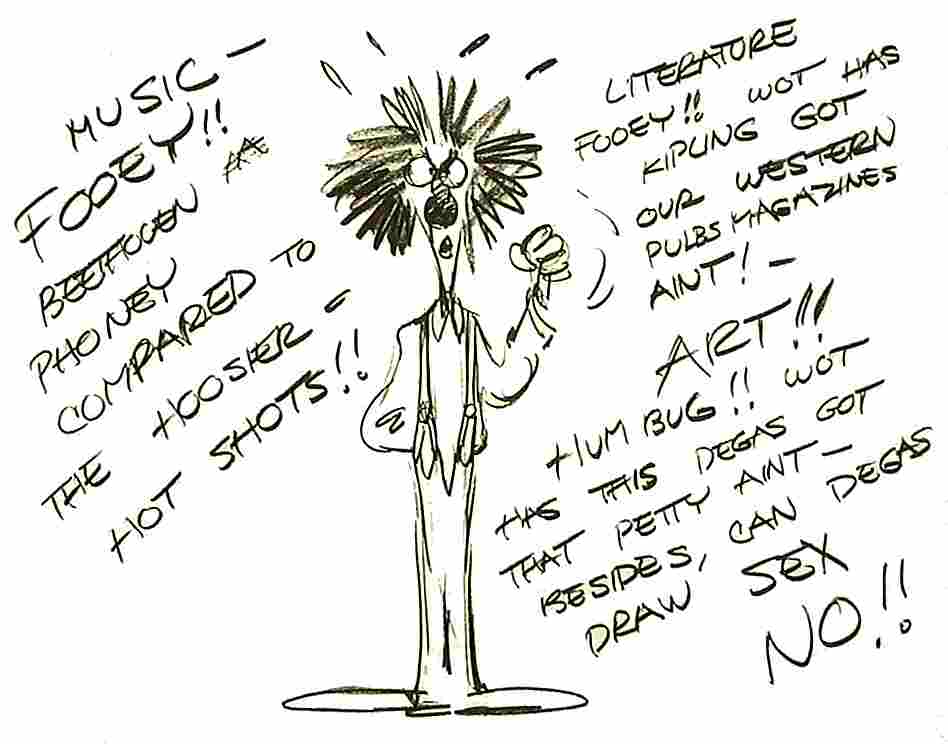 MUSIC —
FOOEY!!
BEETHOVEN AA
PHONEY
COMPARED TO
THE HOOSIER —
HOT SHOTS!!
LITERATURE
FOOEY!! WOT HAS
KIPLING GOT
OUR WESTERN
PULBS MAGAZINES
AINT! —
ART!!
HUM BUG!! WOT
HAS THIS DEGAS GOT
THAT PETTY AINT —
BESIDES, CAN DEGAS
DRAW SEX
NO!!